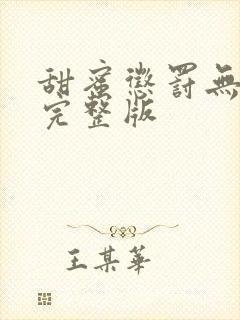 甜蜜懲罰無
完整版
王某華